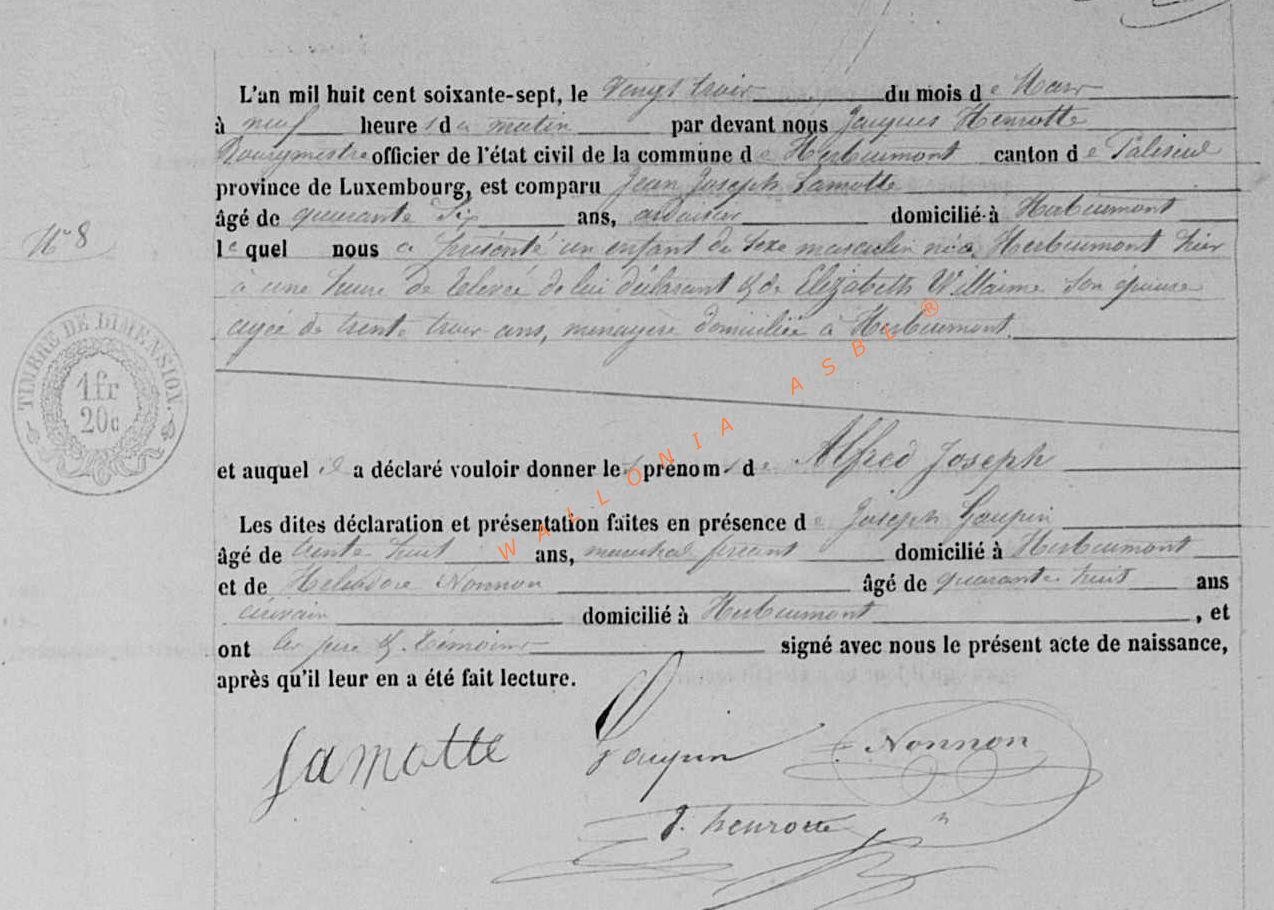 L'an mil huit cent soixante-sept, le vingt trois du mois de Mars
à neuf heures du matin par devant nous Jacques Henrotte
Bourgmestre officier de l'état civil de la commune de Herbeumont canton de Paliseul
province de Luxembourg, est comparu Jean Joseph Lamotte
âgé de quarante six ans, ardoisier domicilié à Herbeumont
N° 8
lequel nous a présenté un enfant du sexe masculin né à Herbeumont hier
à une heure de relevée de lui déclarant & de Elizabeth Willaime son épouse
agée de trente trois ans, menagère domiciliée à Herbeumont.
TIMBRE DE DIMENSION
1fr
20c
et auquel il a déclaré vouloir donner les prénoms de Alfred Joseph
Les dites déclaration et présentation faites en présence de Joseph Goupin
âgé de trente huit ans, marechal ferrant domicilié à Herbeumont
et de Heliodore Nonnon âgé de quarante huit ans
écrivain domicilié à Herbeumont, et
ont les père & témoins signé avec nous le présent acte de naissance,
après qu'il leur en a été fait lecture.
WALLONIA ASBL ®
Lamotte Goupin Nonnon
J. henrotte